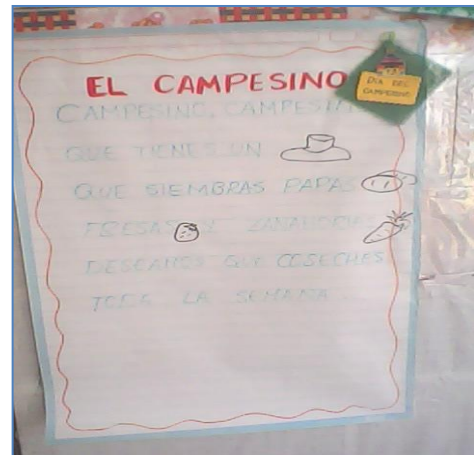 EL CAMPESINO
DIA DEL
CAMPESINO
CAMPESINO, CAMPESINO
QUE TIENES UN
QUE SIEMBRAS PAPAS
FRESAS Y ZANAHORIAS
DESEAMOS QUE COSECHES
TODA LA SEMANA